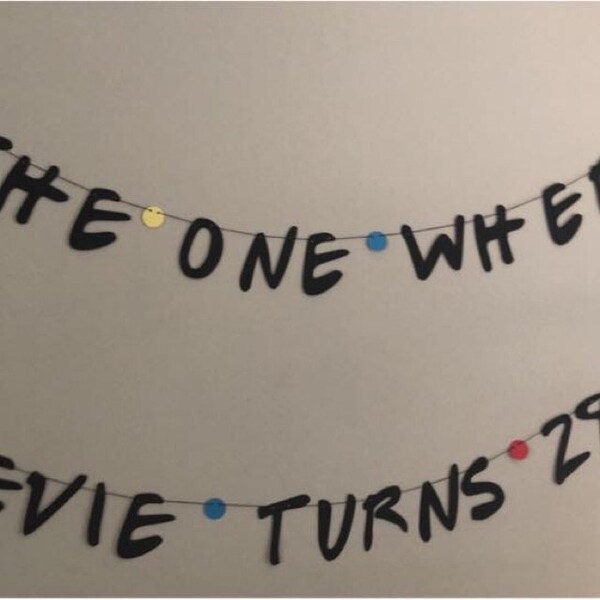 THE ONE WHE
EVIE TURNS 29